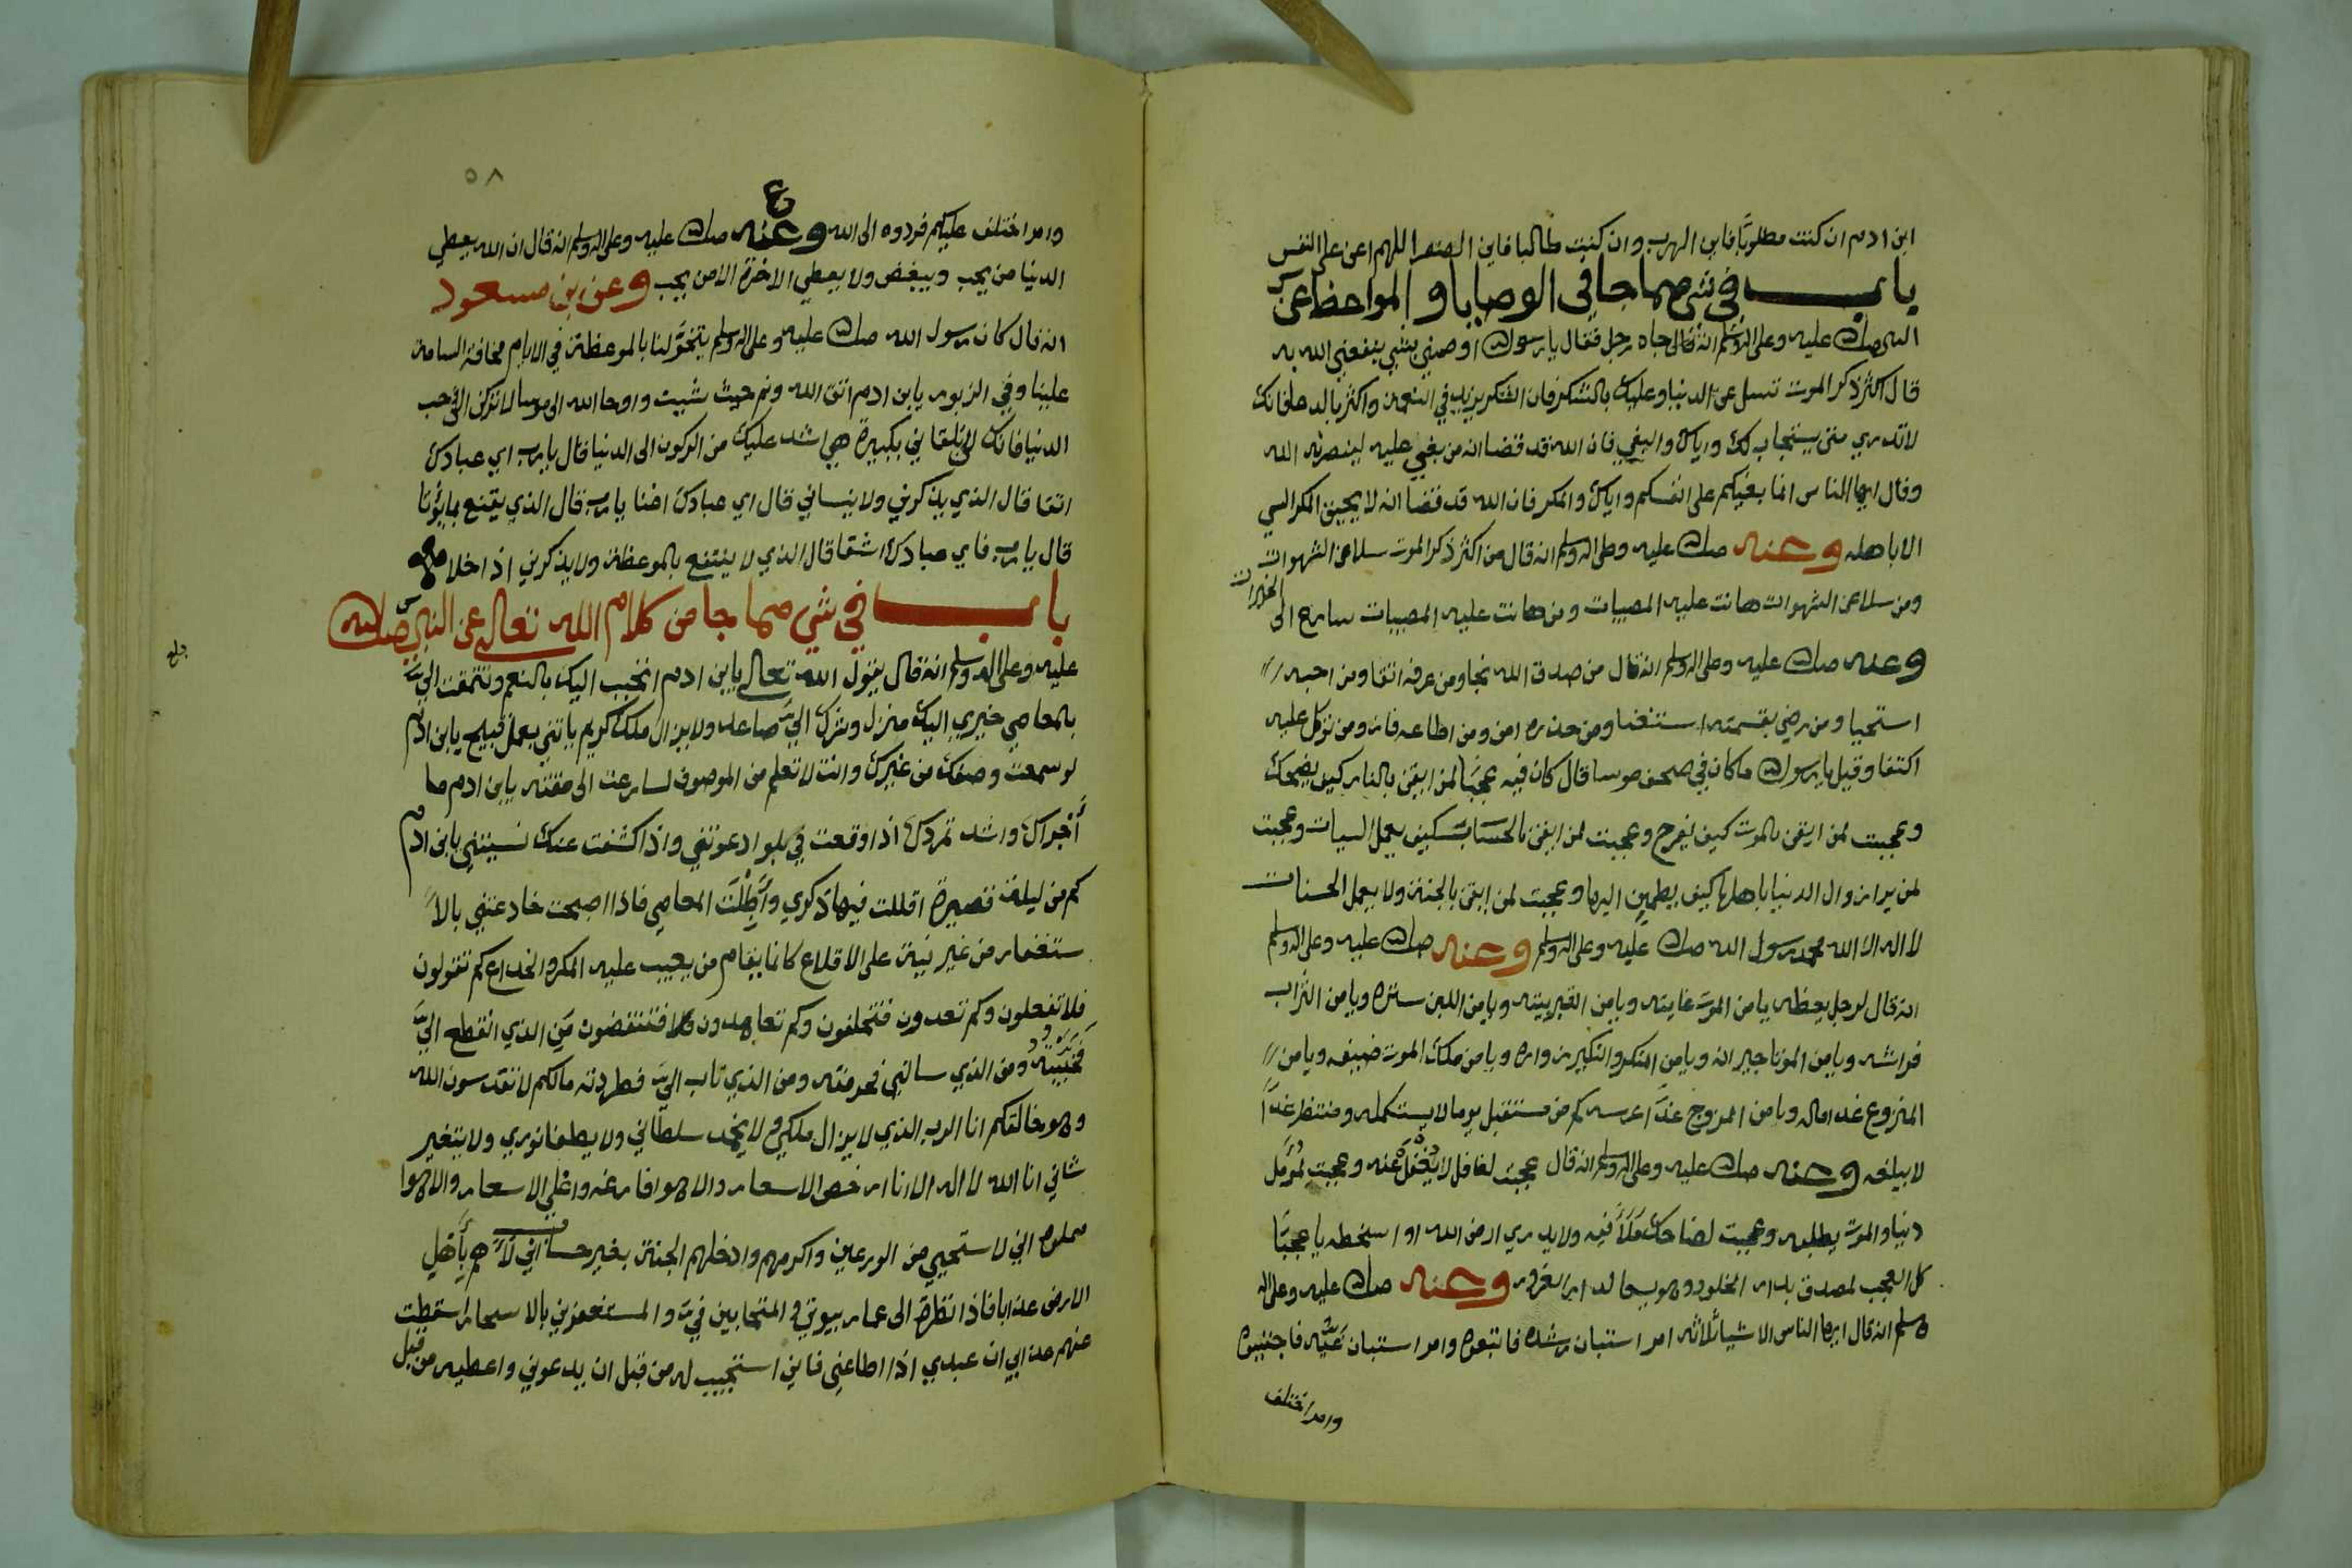 ابن ادم ان كنت مطلوبًا فاين الهرب وان كنت طالبا فاين اللهم اعن على النفس
باب في شي مما جا في الوصايا والمواعظ عن
النبي صلى الله عليه وعلى اله وسلم انه قال جاه رجل فقال يا رسول الله اوصني بشي ينفعني الله به
قال اكثر ذكر الموت تسل عن الدنيا وعليك بالشكر فان الشكر يزيد في النعمة واكثر بالدعا فانك
لا تدري متى يستجاب لك واياك والبغي فان الله قد قضا انه من بغي عليه لينصرنه الله
وقال ايها الناس انما بغيكم على انفسكم واياك والمكر فان الله قد قضا ان لا يحيق المكر السي
الا باهله وعنه صلى الله عليه وعلى اله وسلم انه قال من اكثر ذكر الموت سلا عن الشهوات
ومن سلا عن الشهوات هانت عليه المصيبات ومن هانت عليه المصيبات سارع الى الخيرات
وعنه صلى الله عليه وعلى اله وسلم انه قال من صدق الله نجا ومن عرفه اتقا ومن احبه
استحيا ومن رضي بقسمته استغنا ومن حذره امن ومن اطاعه فاز ومن توكل عليه
اكتفا وقيل يا رسول الله ما كان في صحف موسا قال كان فيه عجبًا لمن ايقن بالنار كيف يضحك
وعجبت لمن ايقن بالموت كيف يفرح وعجبت لمن ايقن بالحساب كيف يعمل السيات وعجبت
لمن يرا زوال الدنيا باهلها كيف يطمين اليها وعجبت لمن ايقن بالجنة ولا يعمل الحسنات
لا اله الا الله محمد رسول الله صلى الله عليه وعلى اله وسلم وعنه صلى الله عليه وعلى اله وسلم
انه قال لرجل يعظه يا من الموت غايته ويا من القبر بيته ويا من اللبن ستره ويا من التراب
فراشه ويا من الموتا جيرانه ويا من المنكر والنكير زواره ويا من ملك الموت ضيفه ويا من
المنزوع غدا ماله ويا من المزوج غدًا عرسه كم من مستقبل يوما لا يستكمله ومنتظر غدًا
لا يبلغه وعنه صلى الله عليه وعلى اله وسلم انه قال عجبت لغافل لا يُغْفَلُ عنه وعجبت لمُؤَمِّل
دنيا والموت يطلبه وعجبت لضاحك مَلَأَ فيه ولا يدري ارضا الله او اسخطه يا عجبًا
كل العجب لمصدق بدار الخلود وهو يسعا لدار الغرور وعنه صلى الله عليه وعلى اله
وسلم انه قال ايها الناس الاشيا ثلاثه امر استبان رشده فاتبعوه وامر استبان غَيُّه فاجتنبوه
وامر اختلف
٥٨
وامر اختلف عليكم فردوه الى الله وعنه صلى الله عليه وعلى اله وسلم انه قال ان الله يعطي
الدنيا من يحب ويبغض ولا يعطي الاخرة الا من يحب وعن ابن مسعود
انه قال كان رسول الله صلى الله عليه وعلى اله وسلم يتخوّلنا بالموعظة في الايام مخافة السامة
علينا وفي الزبور يا بن ادم اتق الله ونم حيث شيت واوحا الله الى موسا لا تركن الى حب
الدنيا فانك لن تلقاني بكبيرة هي اشد عليك من الركون الى الدنيا قال يا رب اي عبادك
اتقا قال الذي يذكرني ولا ينساني قال اي عبادك اغنا يا رب قال الذي يقنع بما يؤتا
قال يا رب فاي عبادك اشقا قال الذي لا ينتفع بالموعظة ولا يذكرني اذا خلا
باب في شي مما جا من كلام الله تعالى عن النبي صلى الله
عليه وعلى اله وسلم انه قال يقول الله تعالى يا بن ادم اتحبب اليك بالنعم وتتمقت اليَّ
بالمعاصي خيري اليك منزل وشرك اليَّ صاعد ولا يزال ملك كريم ياتني بعمل قبيح يا بن ادم
لو سمعت وصفك من غيرك وانت لا تعلم من الموصوف لسارعت الى مقته يا بن ادم ما
أجراك واشد تمردك اذا وقعت في بلوا دعوتني واذا كشفت عنك نسيتني يا بن ادم
كم من ليلة قصيرة اقللت فيها ذكري وأَطَلْتَ المعاصي فاذا اصبحت خادعتني بالا
ستغفار من غير نية على الاقلاع كانما يقام من يعيب عليه المكر والخداع كم تقولون
فلا تفعلون وكم تعدون فتخلفون وكم تعاهدون فتنقضون مَن الذي انقطع اليَّ
فخيبته ومن الذي سالني فحرمته ومن الذي تاب اليَّ فطردته مالكم لا تقدسون الله
وهو خالقكم انا الرب الذي لا يزال ملكي ولا يخمد سلطاني ولا يطفا نوري ولا يتغير
شاني انا الله لا اله الا انا ارخص الاسعار والاهوا فارغه واغلي الاسعار والاهوا
مملوه اني لاستحيي من الورعين واكرمهم وادخلهم الجنة بغير حساب اني لأَهُمّ بأهل
الارض عذابا فاذا نظرت الى عمار بيوتي والمتحابين فيَّ والمستغفرين بالاسحار اسقطت
عنهم عذابي ان عبدي اذا اطاعني فاني استجيب له من قبل ان يدعوني واعطيه من قبل